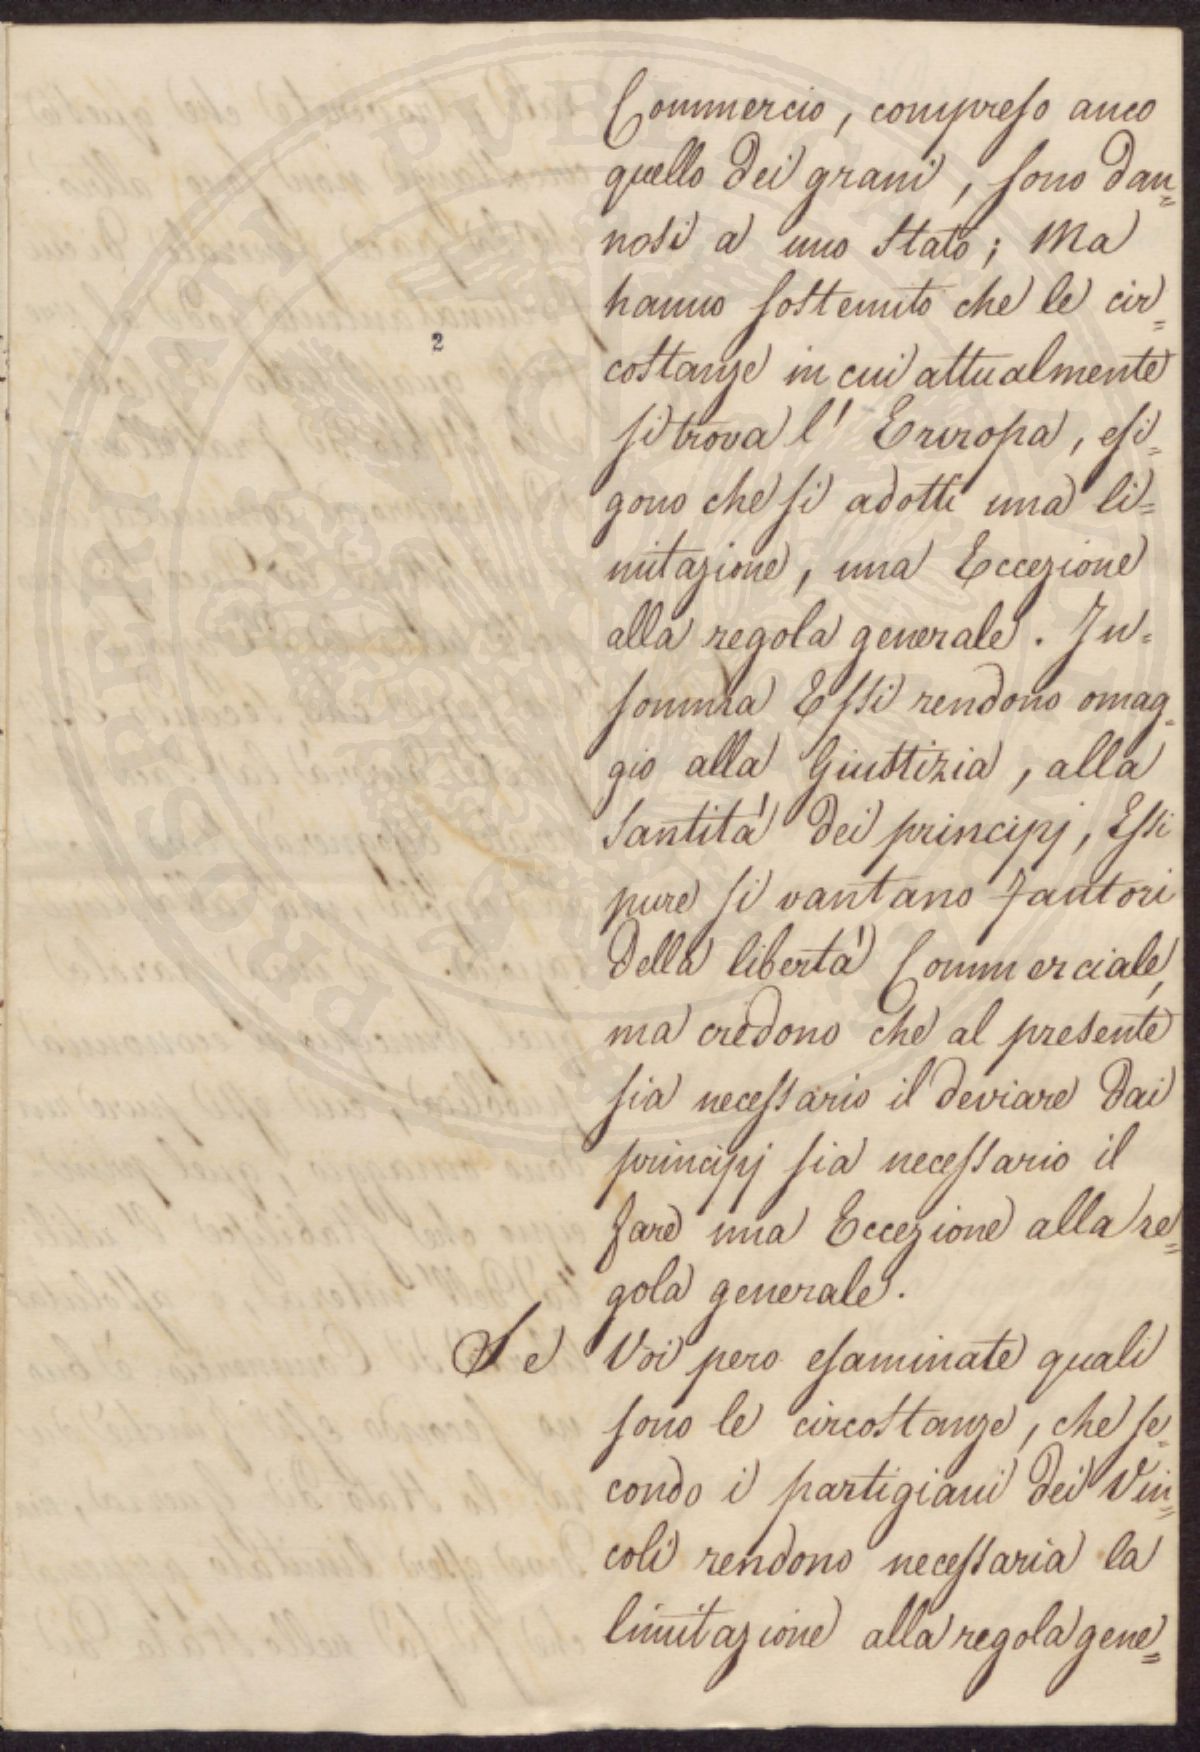 Commercio, compreso anco
quello dei grani, sono dan=
nosi a uno Stato; Ma
hanno sostenuto che le cir=
costanze in cui attualmente
si trova l' Eruropa, esi=
gono che si adotti una li=
mitazione, una Eccezione
alla regola generale. In=
somma Essi rendono omag=
gio alla Giustizia, alla
Santità dei principj, Essi
pure si vantano fautori
della libertà Commerciale,
ma credono che al presente
sia necessario il deviare dai
principj sia necessario il
fare una Eccezione alla re=
gola generale.
Se Voi pero esaminate quali
sono le circostanze, che se=
condo i partigiani dei Vin=
coli rendono necessaria la
limitazione alla regola gene=
2
PROSPERITATI PVBLICAE